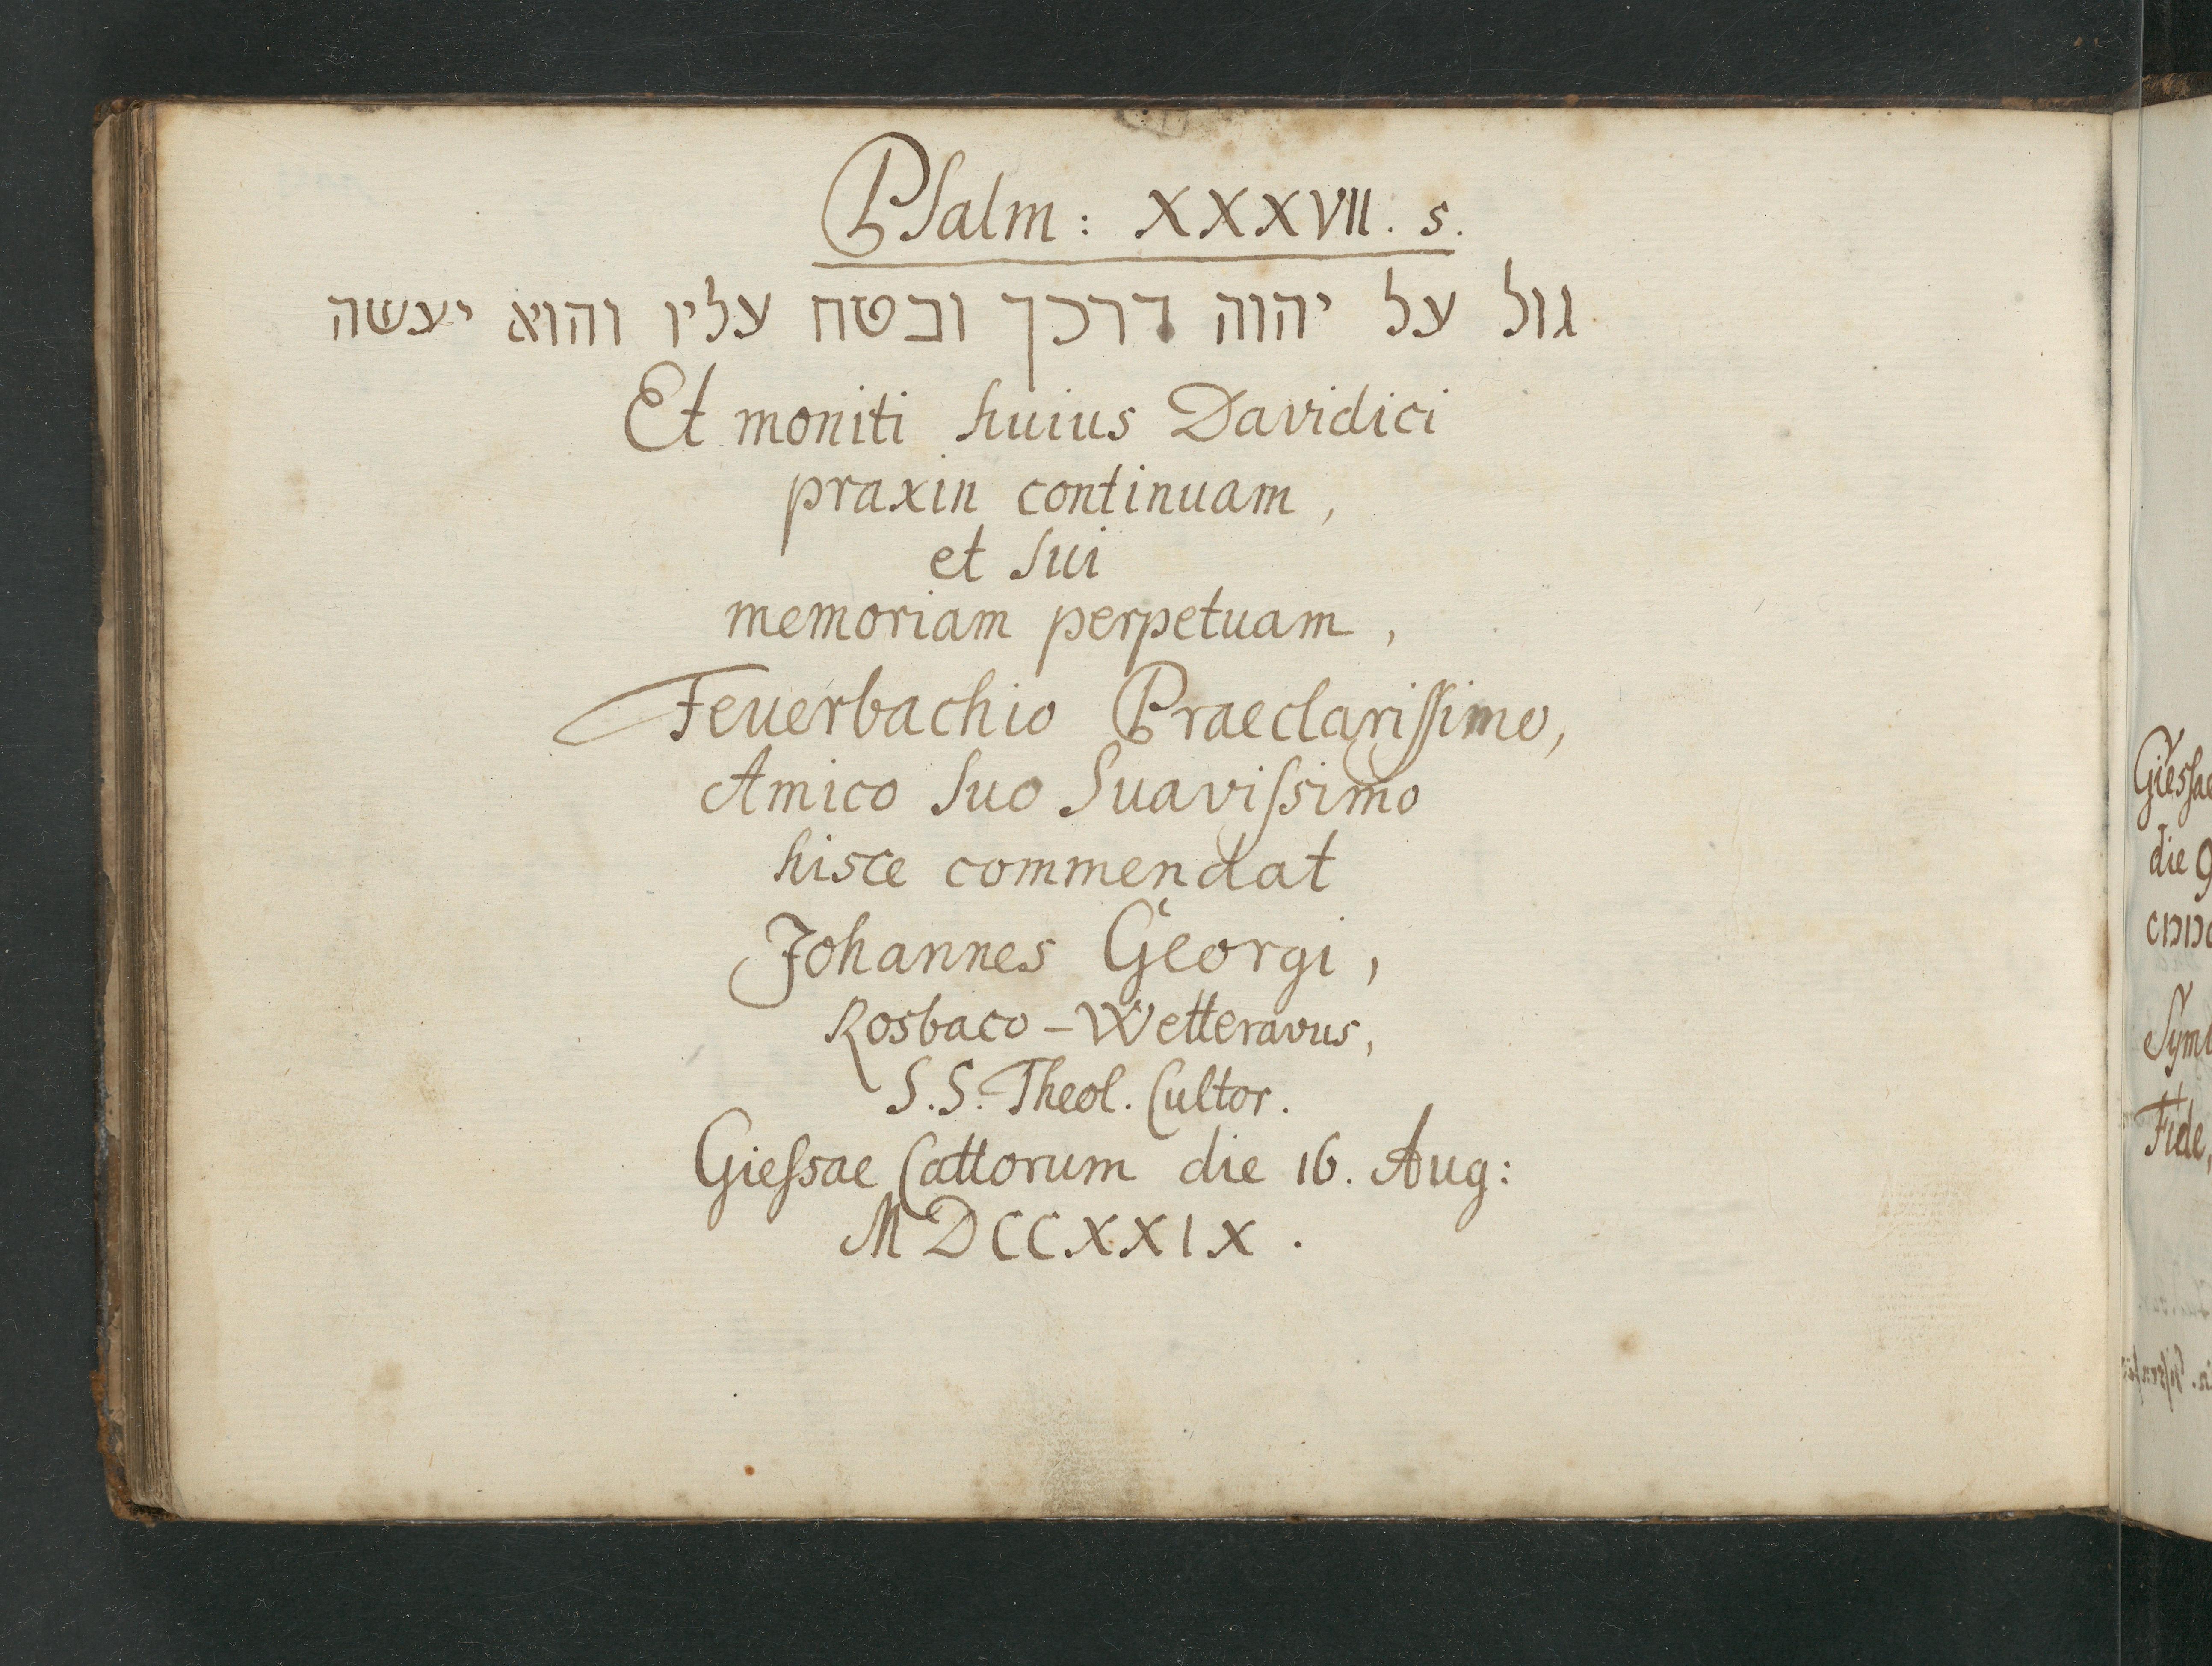 Psalm: XXXVII. 5.
גול על יהוה דרכך ובטח עליו והוא יעשה
Et moniti huius Davidici
praxin continuam,
et sui
memoriam perpetuam,
Feuerbachio Praeclarissimo,
Amico suo Suavissimo
hisce commendat
Johannes Georgi,
Rosbaco-Wetteravus,
S.S. Theol. Cultor.
Giessae Cattorum die 16. Aug:
MDCCXXIX.
Giessae
die 9
Fide,